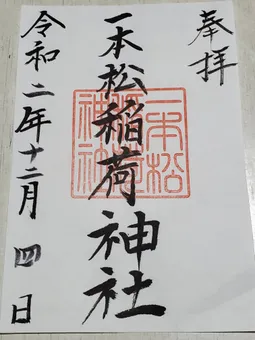 奉拝
一本松稲荷神社
一本松
稲荷
神社
令和二年十二月四日